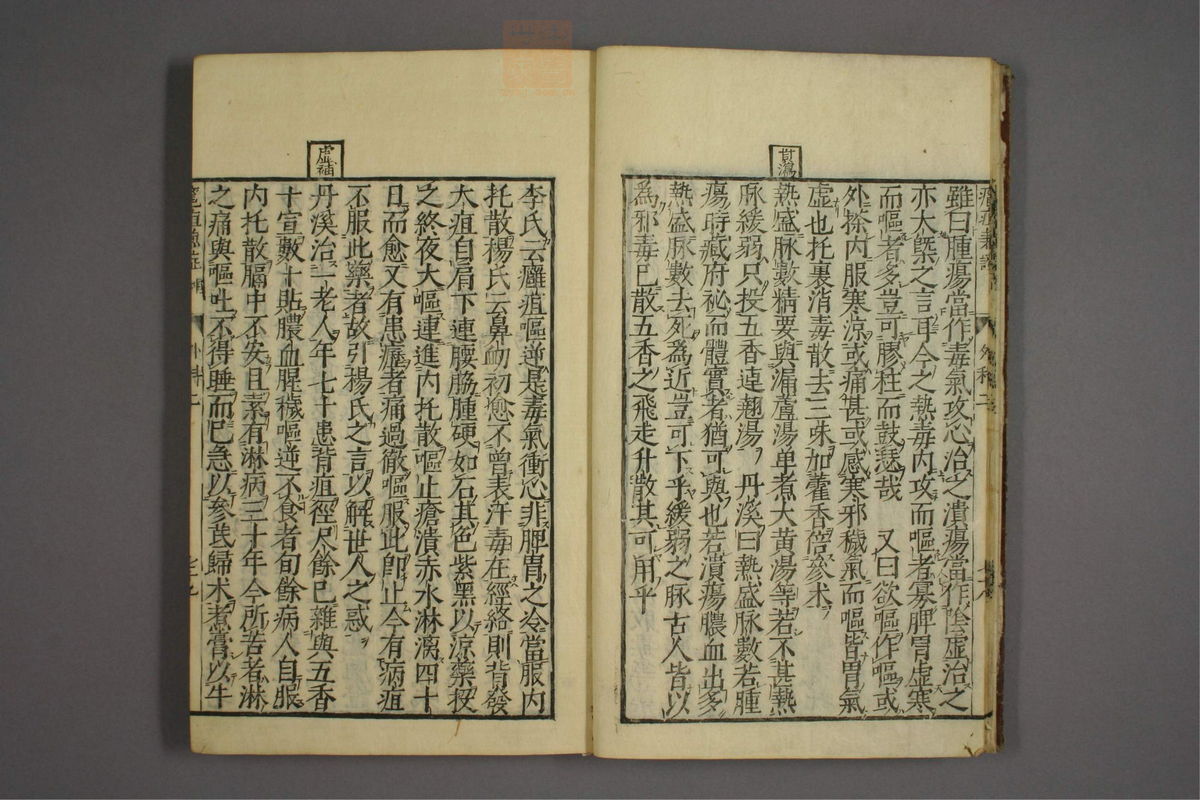 雖曰腫瘍當作毒氣攻心治之潰瘍當作陰虛治之
亦大槩之言耳今之熱毒内攻而嘔者寡脾胃虛寒
而嘔者多豈可膠柱而鼓瑟哉　又曰欲嘔作嘔或
外搽内服寒涼或痛甚或感寒邪穢氣而嘔皆胃氣
虛也托裏消毒散去三味加藿香倍參术
熱盛脉數精要與漏蘆湯単煮大黄湯等若不甚熱
脉緩弱只投五香連翹湯　丹溪曰熱盛脉數若腫
瘍時臓府祕而體實者猶可與也若潰瘍膿血出多
熱盛脉數去死爲近豈可下乎緩弱之脉古人皆以
爲邪毒已散五香之飛走升散其可用乎
虛補
李氏云癰疽嘔逆是毒氣衝心非脾胃之冷當服内
托散楊氏云鼻衂初愈不曾表汗毒在經絡則背發
大疽自肩下連腰脇腫硬如石其色紫黑以涼藥投
之終夜大嘔連進内托散嘔止瘡潰赤水淋漓四十
日而愈又有患癧者痛過徹嘔服此卽止今有病疽
不服此藥者故引楊氏之言以解世人之惑
丹溪治一老人年七十患背疽徑尺餘已雜與五香
十宣數十貼膿血腥穢嘔逆不食者旬餘病人自服
内托散膈中不安且素有淋病三十年今所苦者淋
之痛與嘔吐不得睡而已急以參芪歸术煮膏以牛